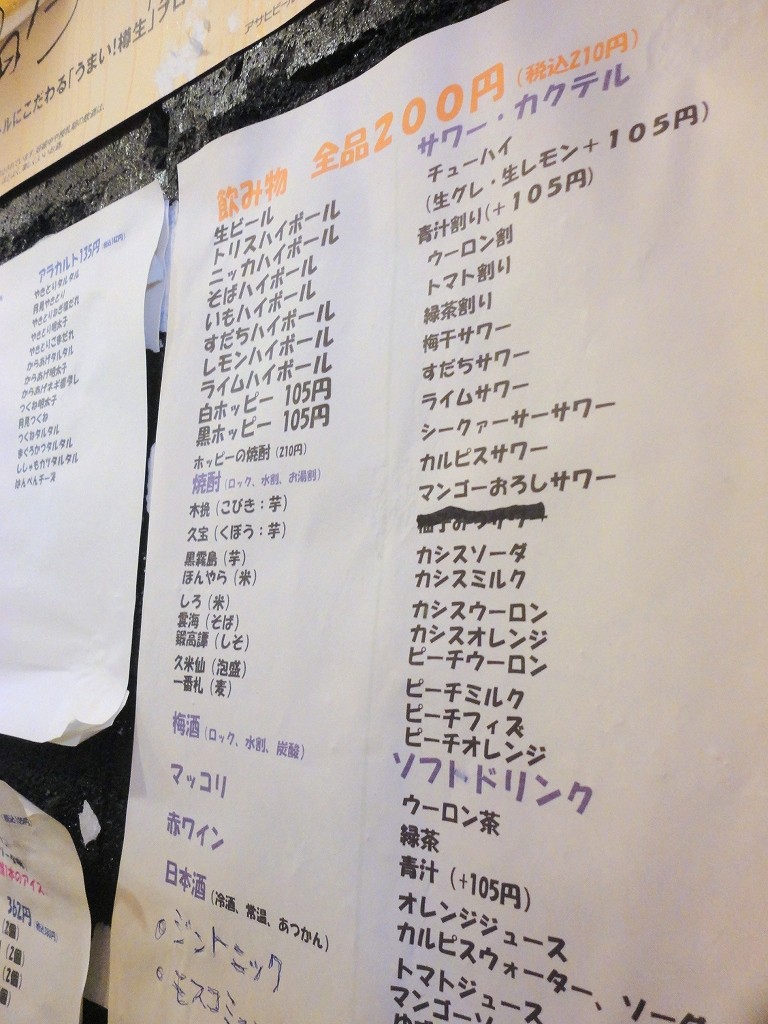 ルにこだわる「うまい!樽生」
アサヒビール
アラカルト135円
やきとりタルタル
月見やきとり
やきとりねぎ塩だれ
やきとり明太子
やきとりごまだれ
からあげタルタル
からあげ明太子
からあげネギ塩タレ
つくね明太子
月見つくね
つくねタルタル
まぐろかつタルタル
ししゃもカツタルタル
はんぺんチーズ
本のアイス
362円
(2個)
(2個)
(2個)
飲み物 全品200円(税込210円)
生ビール
トリスハイボール
ニッカハイボール
そばハイボール
いもハイボール
すだちハイボール
レモンハイボール
ライムハイボール
白ホッピー 105円
黒ホッピー 105円
ホッピーの焼酎(210円)
焼酎(ロック、水割、お湯割)
木挽(こびき:芋)
久宝(くぼう:芋)
黒霧島(芋)
ほんやら(米)
しろ(米)
雲海(そば)
鍛高譚(しそ)
久米仙(泡盛)
一番札(麦)
梅酒(ロック、水割、炭酸)
マッコリ
赤ワイン
日本酒(冷酒、常温、あつかん)
・ジントニック
・モスコミ
サワー・カクテル
チューハイ
(生グレ・生レモン+105円)
青汁割り(+105円)
ウーロン割
トマト割り
緑茶割り
梅干サワー
すだちサワー
ライムサワー
シークァーサーサワー
カルピスサワー
マンゴーおろしサワー
カシスソーダ
カシスミルク
カシスウーロン
カシスオレンジ
ピーチウーロン
ピーチミルク
ピーチフィズ
ピーチオレンジ
ソフトドリンク
ウーロン茶
緑茶
青汁(+105円)
オレンジジュース
カルピスウォーター、ソーダ
トマトジュース
マンゴー